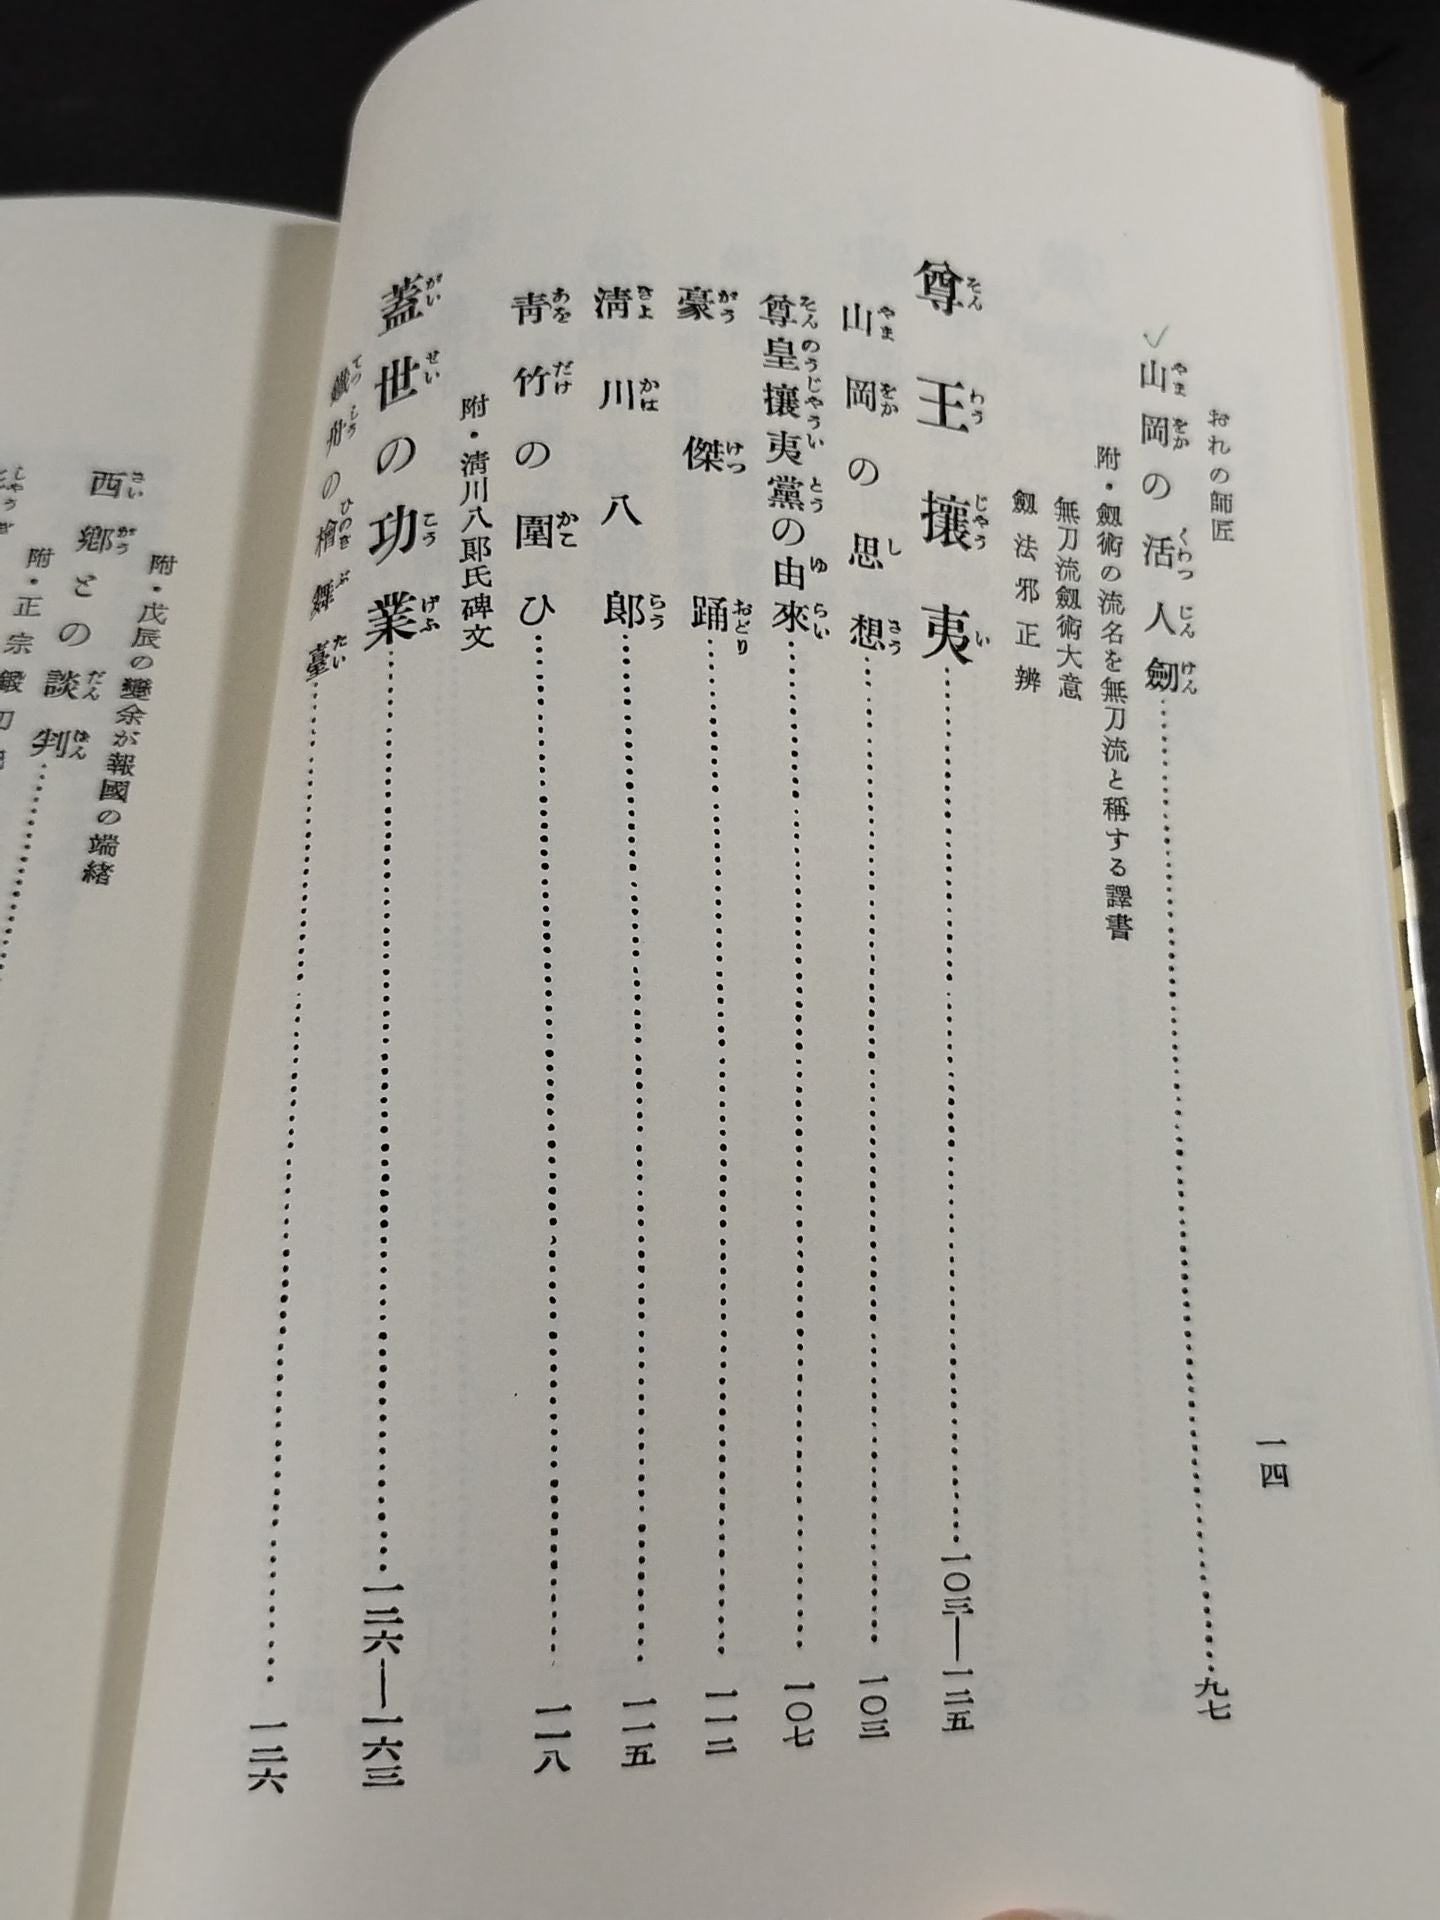 おれの師匠
山岡の活人劍……九七
附・劔術の流名を無刀流と稱する譯書
無刀流劔術大意
劔法邪正辨
尊王攘夷……一〇三―一二五
山岡の思想……一〇三
尊皇攘夷黨の由來……一〇七
豪傑踊……一一二
淸川八郎……一一五
靑竹の圍ひ……一一八
附・淸川八郎氏碑文
蓋世の功業……一二六―一六三
鐵舟の檜舞臺……一二六
一四
附・戊辰の變余が報國の端緒
西鄕との談判……
附・正宗鍛刀